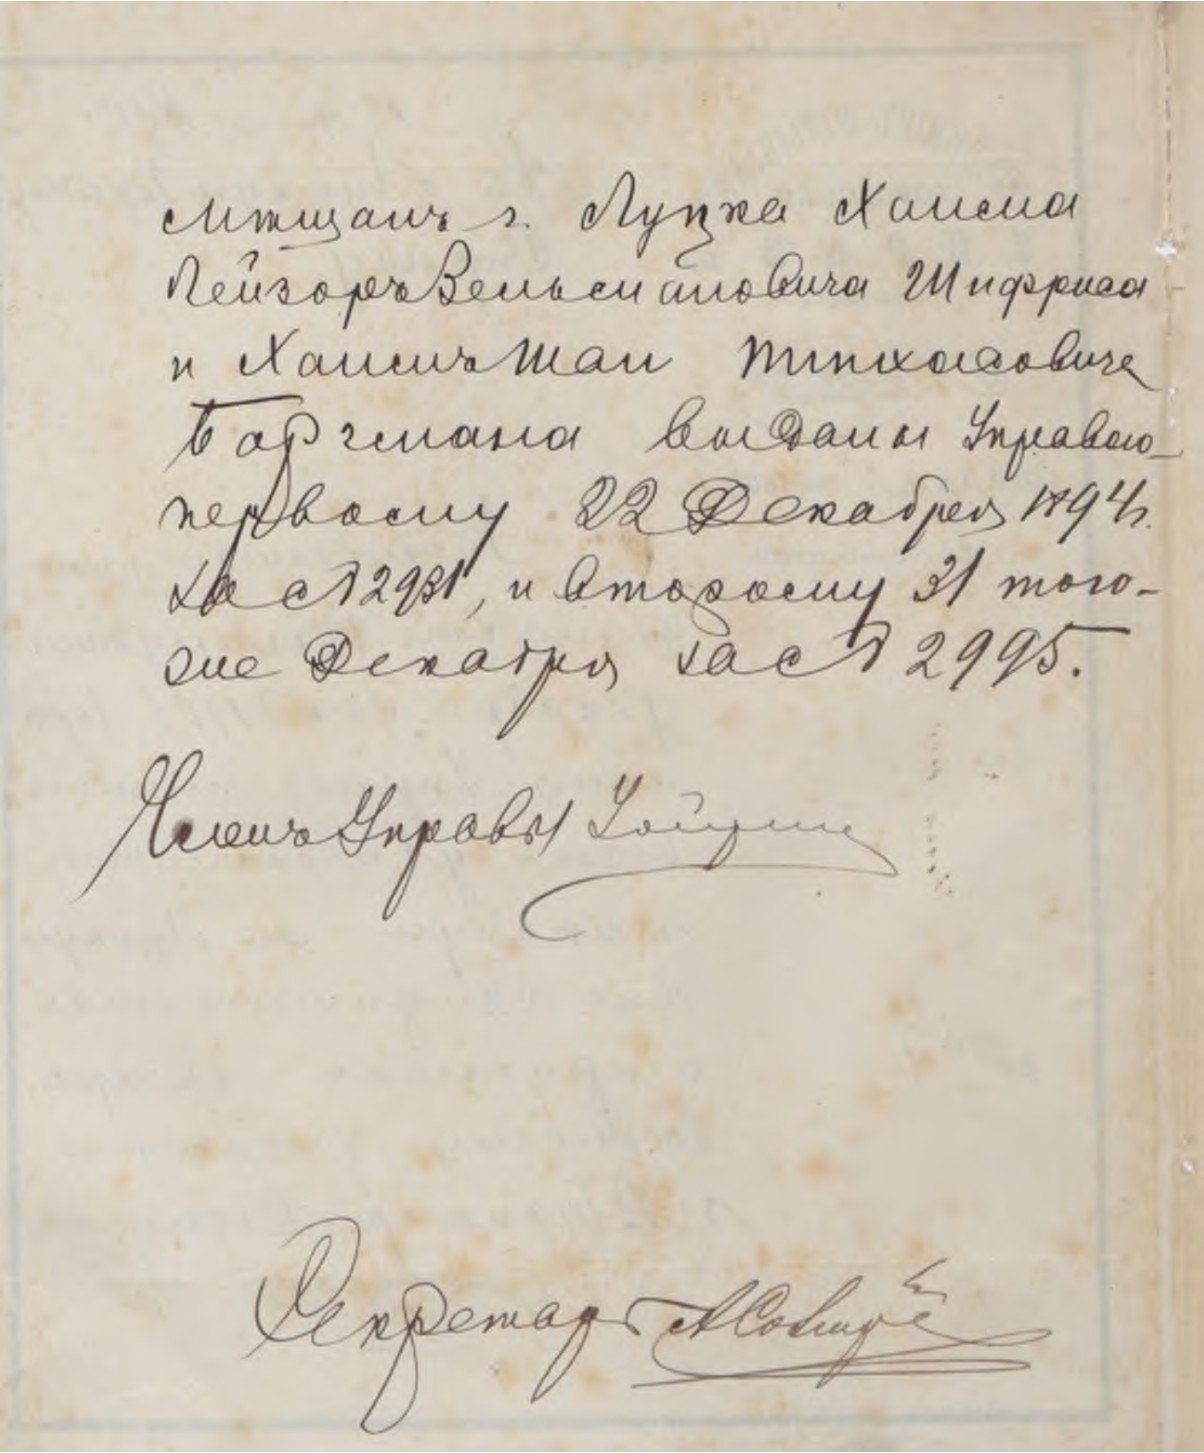 Мѣщанъ г. Луцка Хаима
Лейзоръ Вельмановича Шифриса
и Хаимъ Шаи Пинхасовича
Бергмана выданы Управою
первому 22 Декабря 1894 г.
за № 2931, и второму 31 того-
же Декабря за № 2995.
Членъ Управы
Секретарь